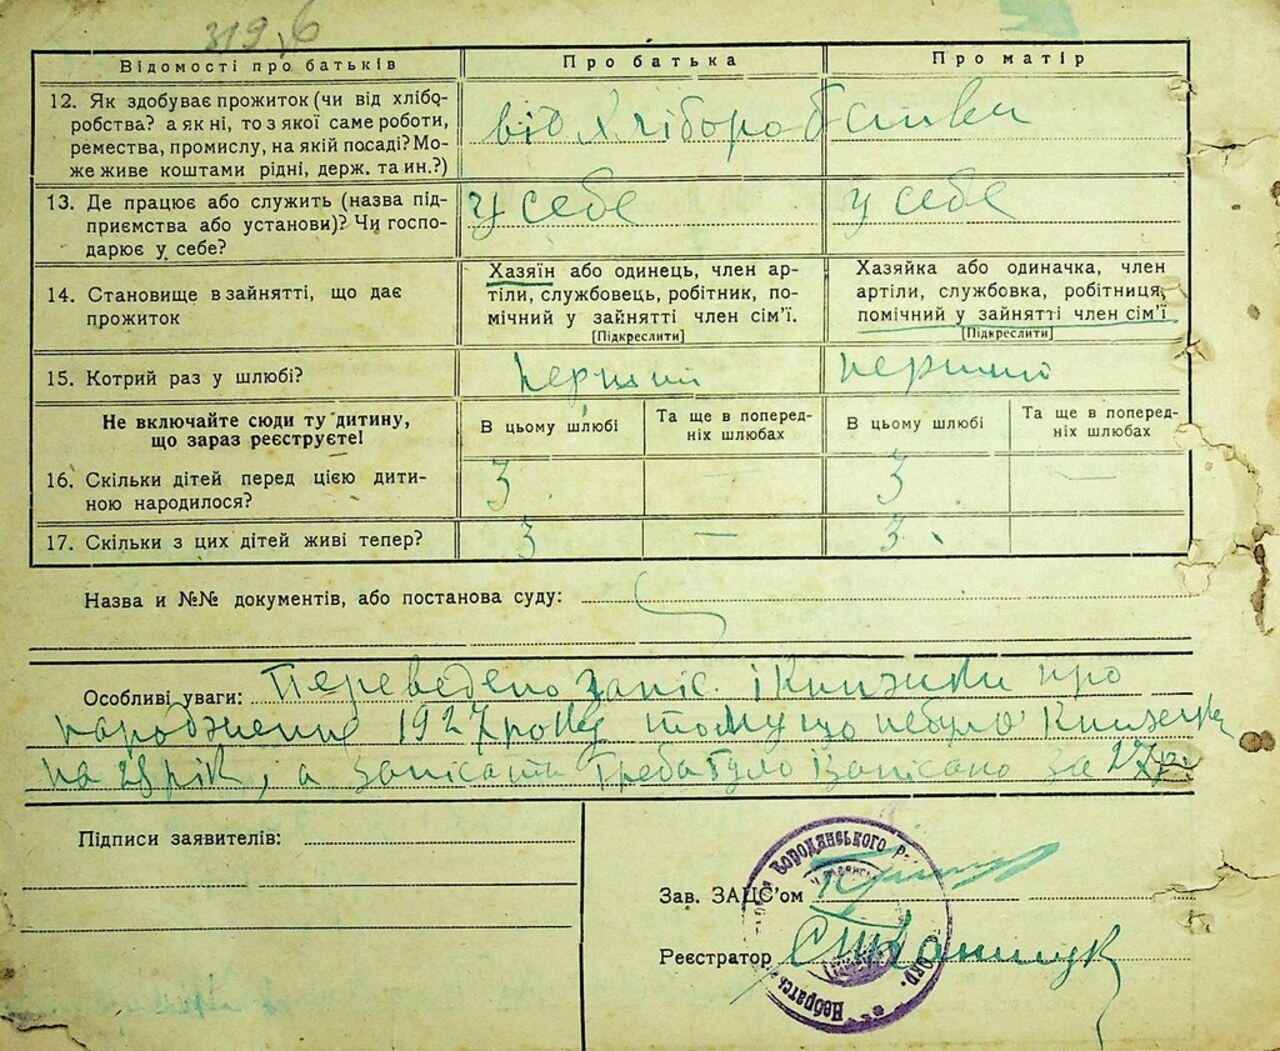 319 6
Відомості про батьків Про батька Про матір
12. Як здобуває прожиток (чи від хлібо-
робства? а як ні, то з якої саме роботи,
ремества, промислу, на якій посаді? Мо-
же живе коштами рідні, держ. та ин.?)
від хліборобства
13. Де працює або служить (назва під-
приємства або установи)? Чи госпо-
дарює у себе?
у себе у себе
14. Становище в зайнятті, що дає
прожиток
Хазяїн або одинець, член ар-
тіли, службовець, робітник, по-
мічний у зайнятті член сім’ї.
[Підкреслити]
Хазяйка або одиначка, член
артіли, службовка, робітниця,
помічний у зайнятті член сім’ї
[Підкреслити]
15. Котрий раз у шлюбі?
перший першій
Не включайте сюди ту дитину,
що зараз реєструєте!
В цьому шлюбі
Та ще в поперед-
ніх шлюбах
В цьому шлюбі
Та ще в поперед-
ніх шлюбах
16. Скільки дітей перед цією дити-
ною народилося?
3 — 3 —
17. Скільки з цих дітей живі тепер?
3 — 3
Назва и №№ документів, або постанова суду:
Особливі уваги: Переведено запіс. і Книжки про
народження 1927 року тому що небуло Книжки
на 28 рік, а запісати треба було і запісано за 27 р.
Підписи заявителів:
Зав. ЗАЦС’ом
Реєстратор
Бородянського
Небратсь